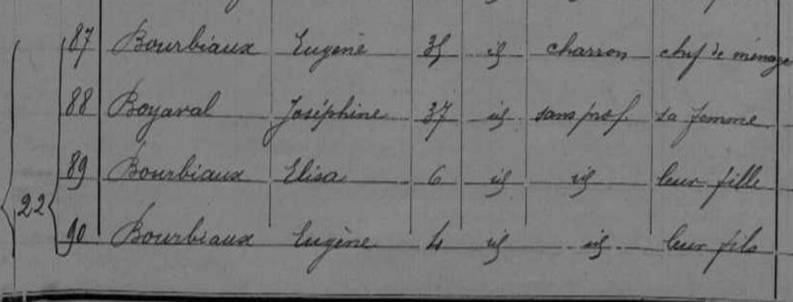 87 Bourbiaux Eugène 35 id charron chef de ménage
88 Boyaval Joséphine 37 id sans prof. sa femme
89 Bourbiaux Elisa 6 id id leur fille
22
90 Bourbiaux Eugène 4 id id leur fils